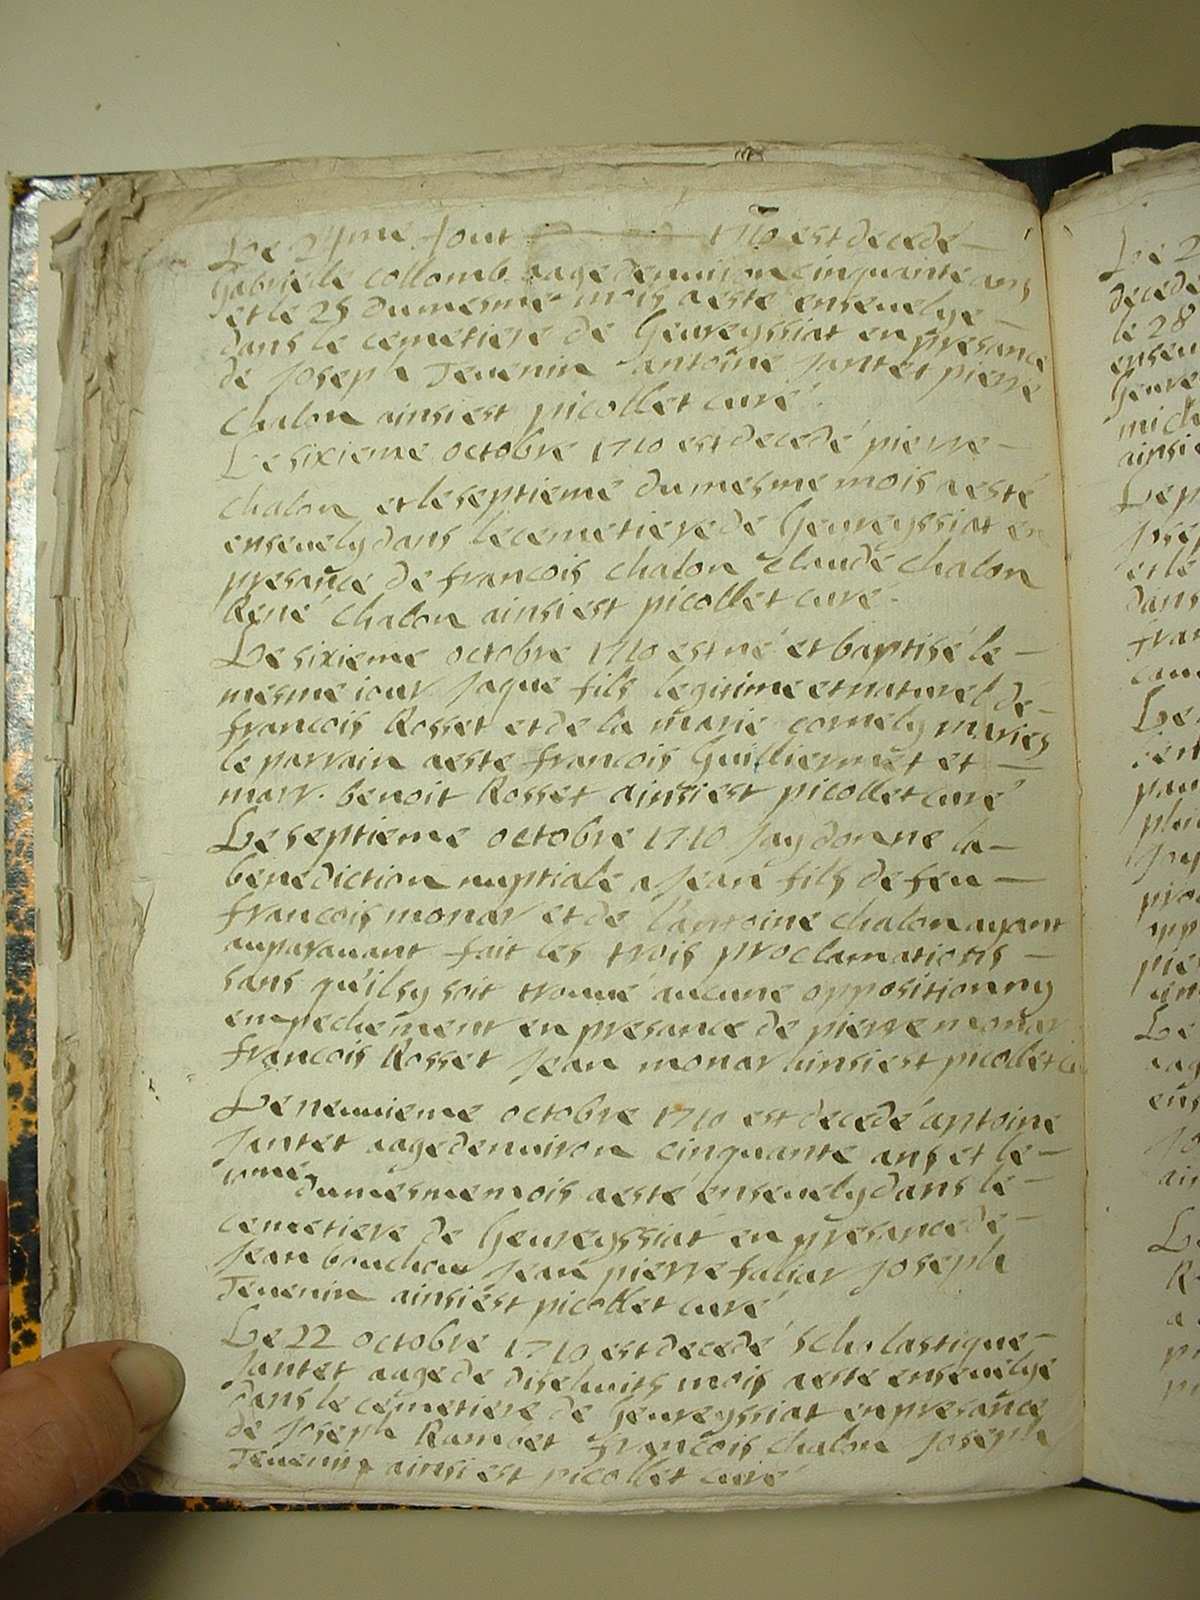 Le 24me Jout 1710 est decedé
Gabrielle collomb aage denuiron cinquante ans
et le 25 du mesme mois aesté enseuelye
dans le cemetiere de Geureyssiat en presance
de Joseph Teuenin antoine Jantet pierre
Chalon ainsi est picollet curé.
Le sixieme octobre 1710 est decedé pierre
chalon et le septieme du mesme mois aesté
enseuely dans le cemetiere de Geureyssiat en
presance de francois chalon Claude chalon
René Chalon ainsi est picollet curé.
Le sixieme octobre 1710 est né et baptisé le
mesme iour Jaque fils legitime et naturel de
francois Rosset et de la marie cornely mariés
le parrain aeste francois Guilliermet et
marr. benoit Rosset ainsi est picollet curé
Le septieme octobre 1710 Jay donne la
benediction nuptiale a Jean fils de feu
francois monar et de l'antoine chalon ayant
auparauant fait les trois proclamations
sans qu'il sy soit trouué aucune opposition ny
empechement en presance de pierre monar
francois Rosset Jean monar ainsi est picollet cu
Le neuuieme octobre 1710 est decedé antoine
Jantet aage denuiron cinquante ans et le
10me du mesme mois aesté enseuely dans le
cemetiere de Geureyssiat en presance de
Jean bouchou Jean pierre faliar Joseph
Teuenin ainsi est picollet curé
Le 22 octobre 1710 est decedé scholastique
Jantet aage de diselmits mois aeste enseuelye
dans le cemetiere de Geureyssiat en presance
de Joseph Ramoet francois chalon Joseph
Teuenin ainsi est picollet curé
Le 2
decede
le 28
enseu
Geure
miche
ainsi e
Le p
Josep
et le
dans
fran
Le
Le
Le